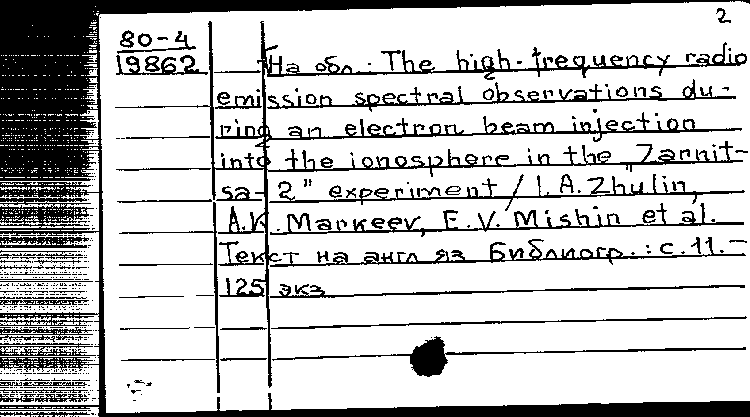 2
80-4
19862
На обл.: The high-frequency radio
emission spectral observations du-
ring an electron beam injection
into the ionosphere in the "Zarnit-
sa-2" experiment / I.A. Zhulin,
A.K. Markeev, E.V. Mishin et al.
Текст на англ яз Библиогр.: с.11.–
125 экз